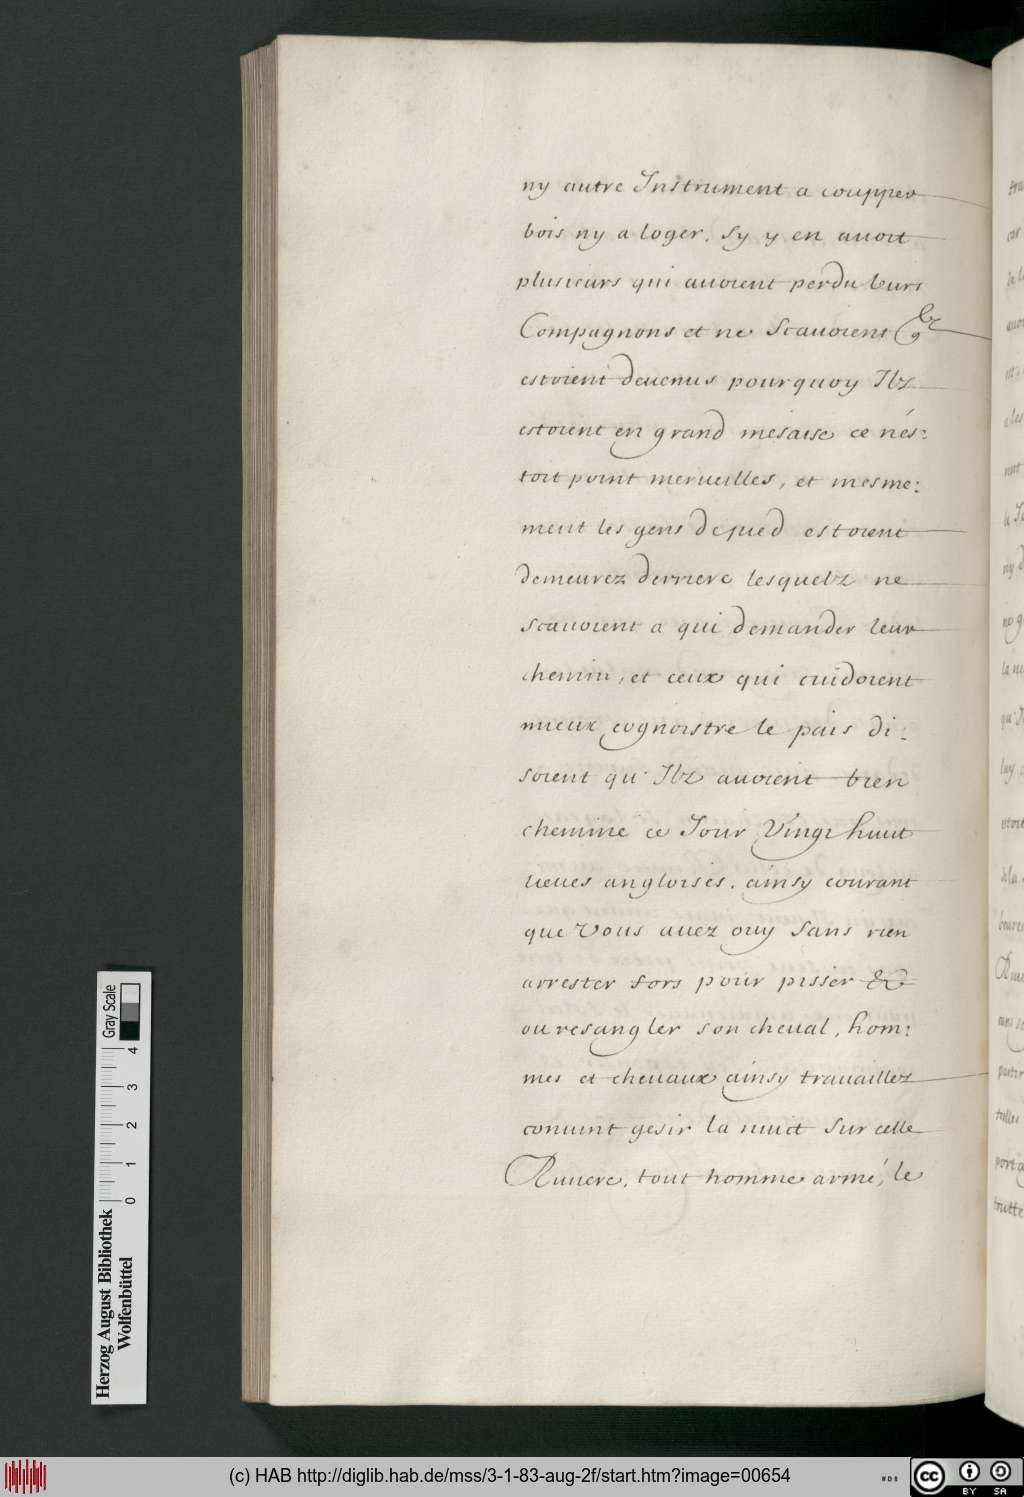 ny autre Instrument a coupper
bois ny a loger. Sy y en auoit
plusieurs qui auoient perdu leurs
Compagnons et ne Scauoient
estoient deuenus pourquoy Ilz
estoient en grand mesaise ce nés:
toit point merueilles, et mesme:
ment les gens de pied estoient
demeurez derriere lesquelz ne
scauoient a qui demander leur
chemin, et ceux qui cuidoient
mieux cognoistre le pais di:
soient qu' Ilz auoient bien
cheminé ce Jour Vingt huit
lieues angloises. ainsy courant
que Vous auez ouy Sans rien
arrester fors pour pisser
ou resangler son cheual, hom:
mes et cheuaux ainsy trauaillez
conuint gesir la nuict Sur celle
Riuiere, tout homme armé, le
Herzog August Bibliothek
Wolfenbüttel
0 1 2 3 4
Gray Scale
(c) HAB http://diglib.hab.de/mss/3-1-83-aug-2f/start.htm?image=00654
cc BY SA